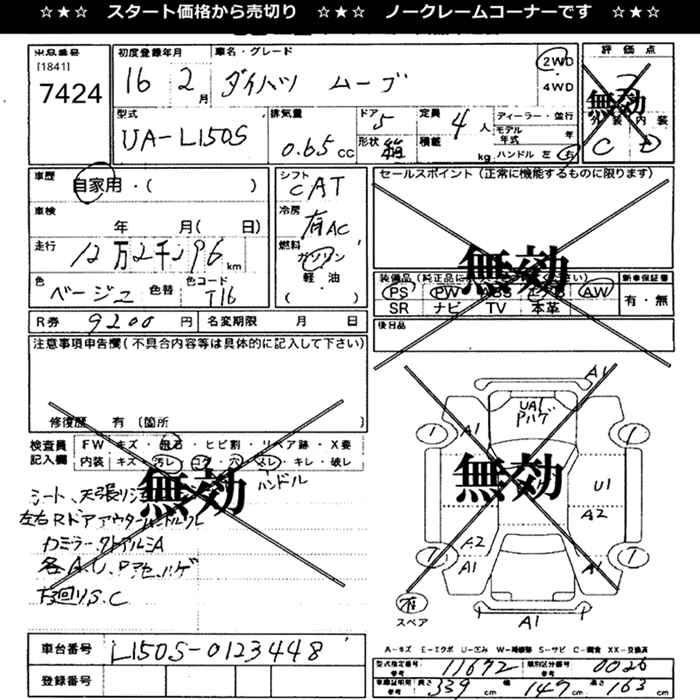 ☆★☆ スタート価格から売切り ☆★☆ ノークレームコーナーです ☆★☆
出品番号 初度登録年月 車名・グレード 評価点
[1841]
7424
16 2月 ダイハツ ムーブ
2WD
・
4WD
無効
外装 内装
C D
型式 排気量 ドア 定員 ディーラー・並行
UA-L150S 0.65cc 5 4人
形状 箱 積載 kg
モデル年式 年
ハンドル 左 右
車歴 自家用・( )
シフト CAT
セールスポイント(正常に機能するものに限ります)
車検 年 月( 日)
冷房 有AC
走行 12万2千196km
燃料 ガソリン
軽油
( )
無効
色 ベージュ 色替 色コード T16
装備品(純正品に さい) 新車保証書
PS PW ABS AW 有・無
SR ナビ TV 本革
R券 9200円 名変期限 月 日
後日品
注意事項申告欄(不具合内容等は具体的に記入して下さい)
修復歴 有 [箇所 ]
検査員記入欄
FW キズ・飛石・ヒビ割・リペア跡・X要
内装 キズ・汚レ・コゲ・穴・スレ・キレ・破レ
ハンドル
無効
シート、天張り
左右Rドアアウターハンドルワレ
各A.U.Pアセ.ハゲ
下廻りS.C
A1
UA1
Pハゲ
1 A1 1
無効
U1
A2
A2
1 A1 1
A1
スペア
A1
A-キズ E-エクボ U-凹み W-補修跡 S-サビ C-腐食 XX-交換済
車台番号 L150S-0123448
登録番号
型式指定番号 参考 11672 類別区分番号 参考 0026
車庫証明用 参考 長さ 339cm 幅 147cm 高さ 163cm